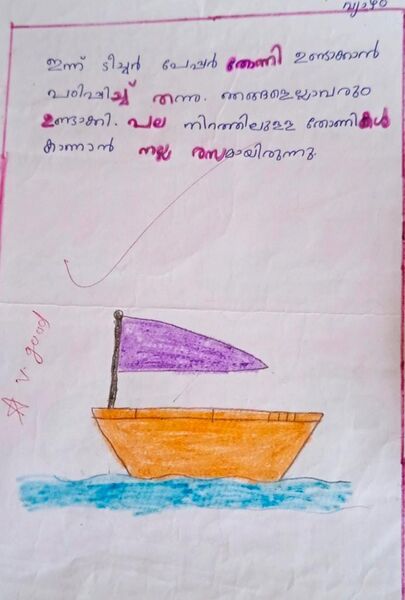 വ്യാഴം
ഇന്ന് ടീച്ചർ പേപ്പർ തോണി ഉണ്ടാക്കാൻ
പഠിപ്പിച്ച് തന്നു. ഞങ്ങളെല്ലാവരും
ഉണ്ടാക്കി. പല നിറത്തിലുള്ള തോണികൾ
കാണാൻ നല്ല രസമായിരുന്നു.
v. good